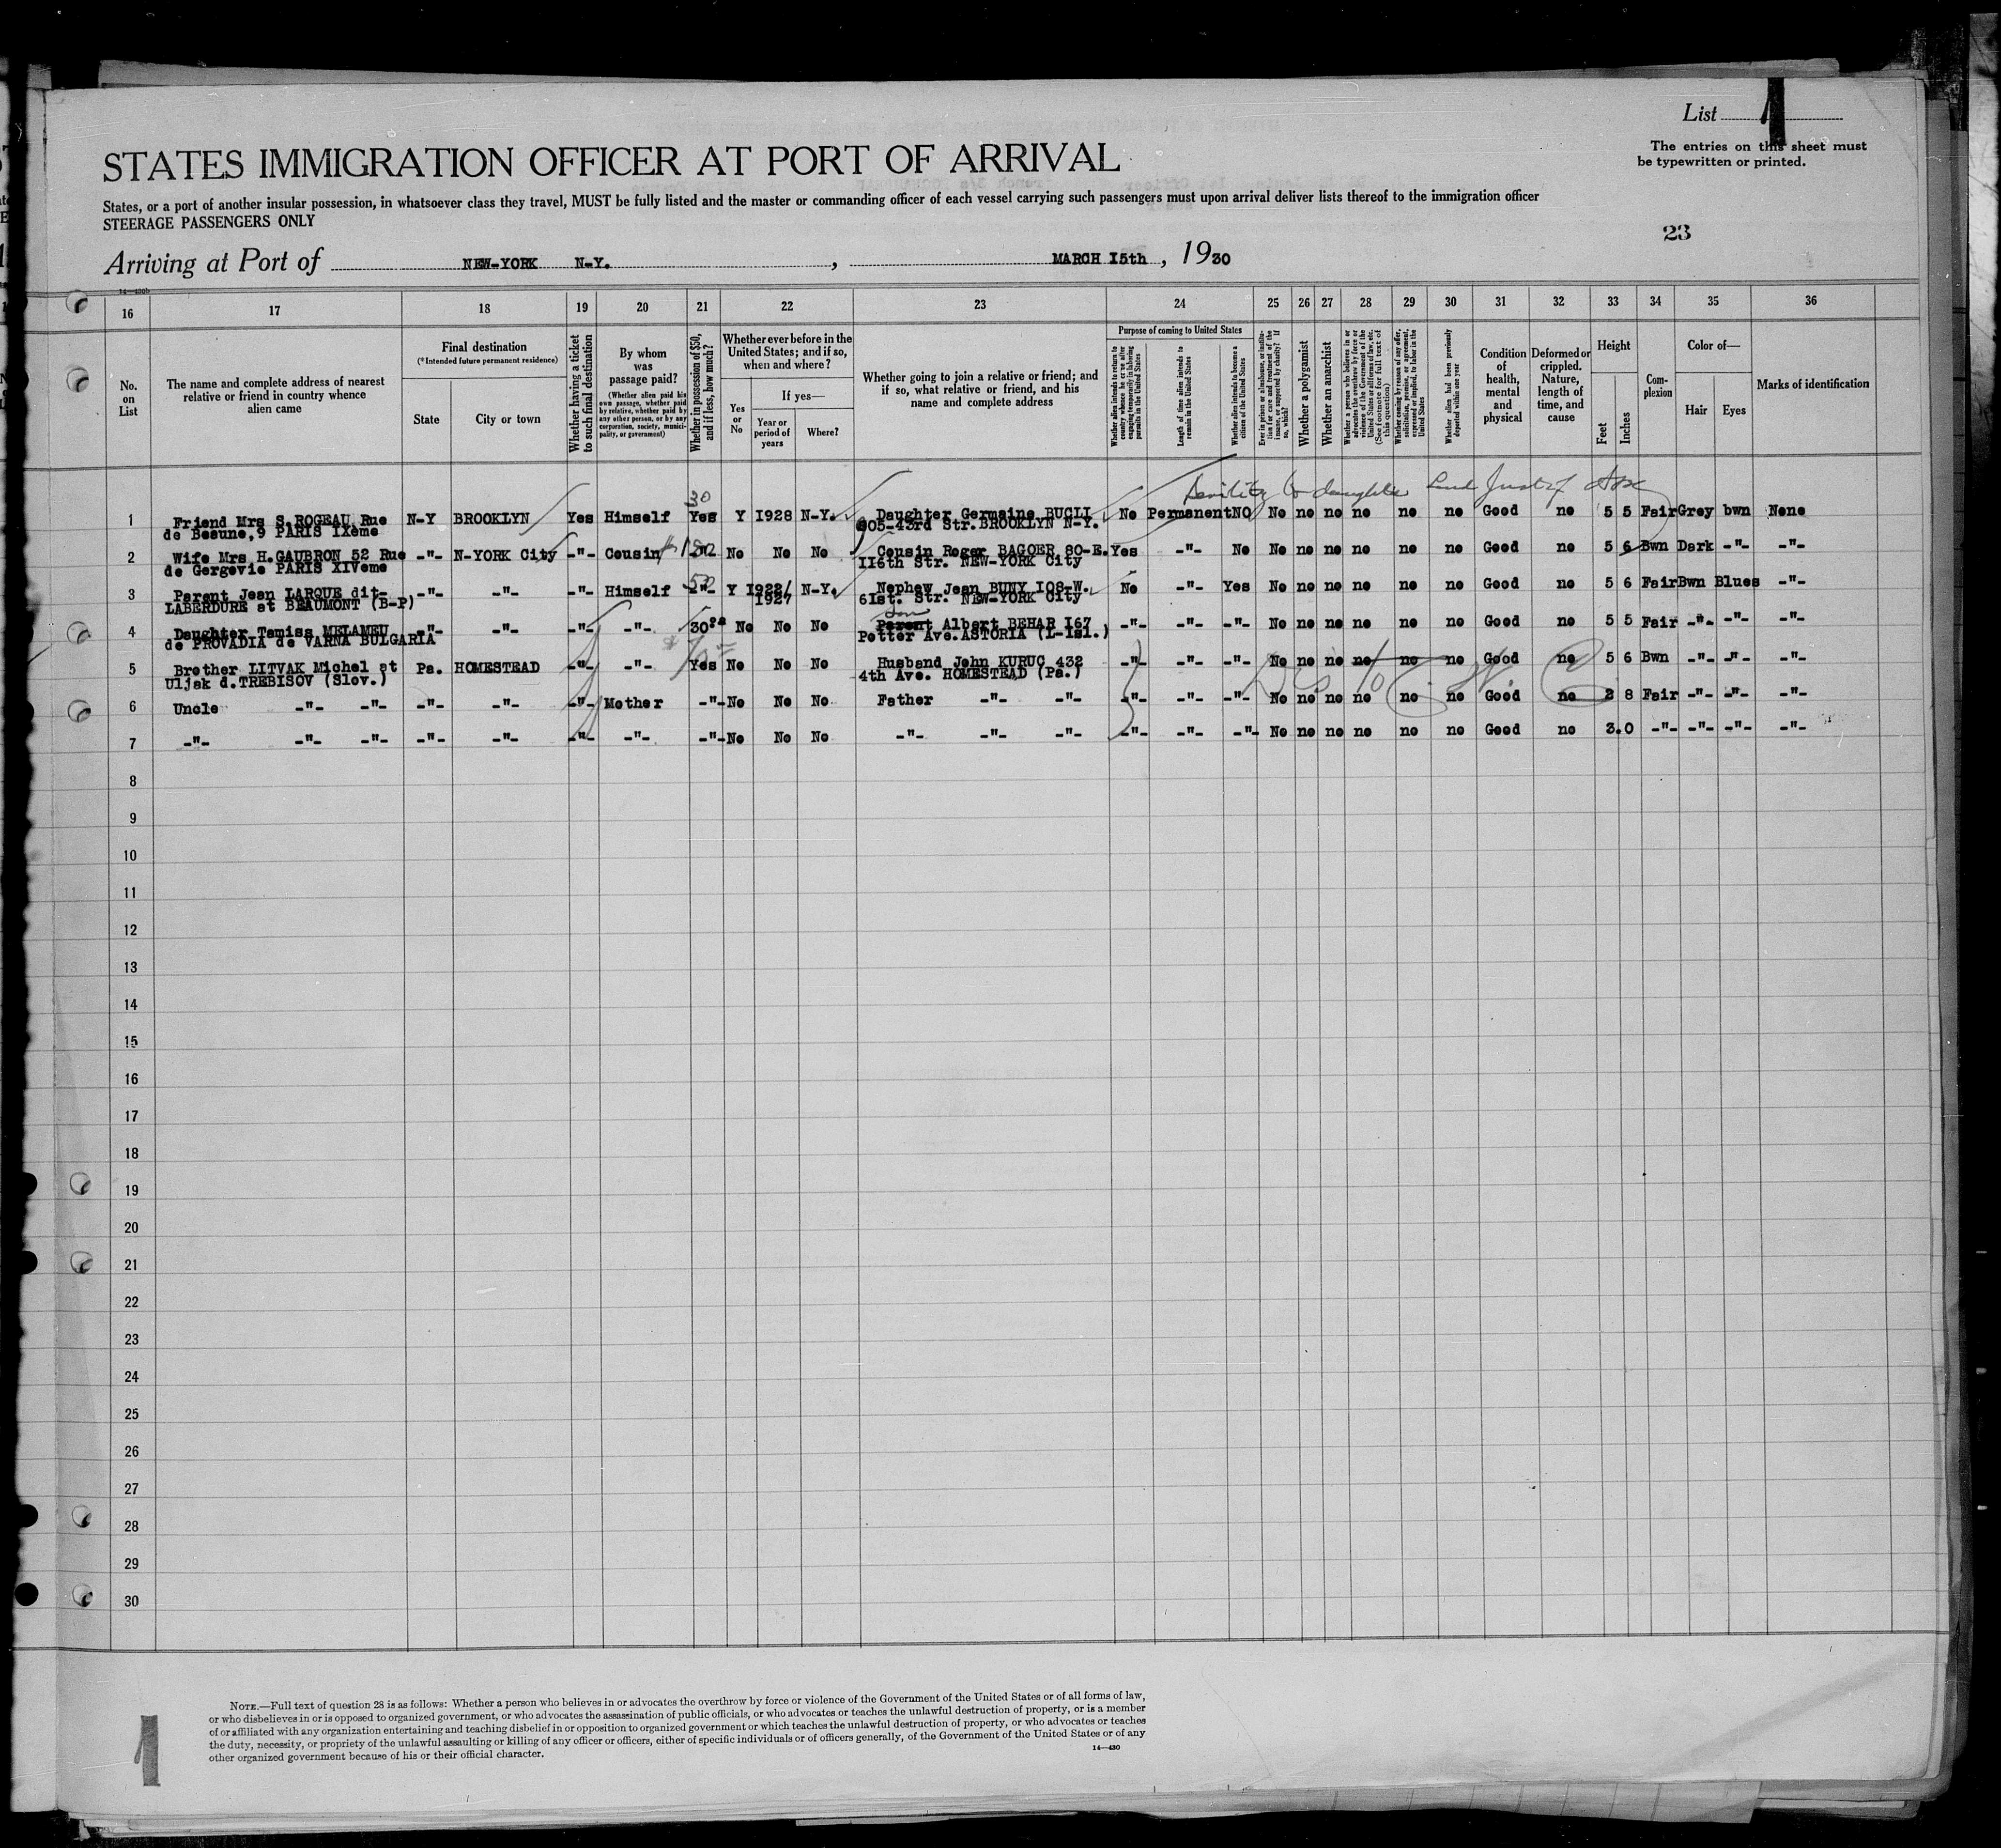 List 1
The entries on this sheet must
be typewritten or printed.
STATES IMMIGRATION OFFICER AT PORT OF ARRIVAL
States, or a port of another insular possession, in whatsoever class they travel, MUST be fully listed and the master or commanding officer of each vessel carrying such passengers must upon arrival deliver lists thereof to the immigration officer
STEERAGE PASSENGERS ONLY
23
Arriving at Port of NEW-YORK N-Y. , MARCH I5th , 1930
14—430b
16 17 18 19 20 21 22 23 24 25 26 27 28 29 30 31 32 33 34 35 36
No.
on
List
The name and complete address of nearest
relative or friend in country whence
alien came
Final destination
(*Intended future permanent residence)
State
City or town
Whether having a ticket
to such final destination
By whom
was
passage paid?
(Whether alien paid his
own passage, whether paid
by relative, whether paid by
any other person, or by any
corporation, society, munici-
pality, or government)
Whether in possession of $50,
and if less, how much?
Whether ever before in the
United States; and if so,
when and where?
Yes
or
No
If yes—
Year or
period of
years
Where?
Whether going to join a relative or friend; and
if so, what relative or friend, and his
name and complete address
Purpose of coming to United States
Whether alien intends to return to
country whence he or she came after
engaging temporarily in laboring
pursuits in the United States
Length of time alien intends to
remain in the United States
Whether alien intends to become a
citizen of the United States
Ever in prison or almshouse, or institu-
tion for care and treatment of the
insane, or supported by charity? If
so, which?
Whether a polygamist
Whether an anarchist
Whether a person who believes in or
advocates the overthrow by force or
violence of the Government of the
United States or all forms of law, etc.
(See footnote for full text of
this question)
Whether coming by reason of any offer,
solicitation, promise, or agreement,
expressed or implied, to labor in the
United States
Whether alien had been previously
deported within one year
Condition
of
health,
mental
and
physical
Deformed or
crippled.
Nature,
length of
time, and
cause
Height
Feet
Inches
Com-
plexion
Color of—
Hair
Eyes
Marks of identification
30
1 Friend Mrs S. ROGEAU Rue N-Y BROOKLYN Yes Himself Yes Y I928 N-Y. Daughter Germaine BUCLI No Permanent NO No no no no no no Good no 5 5 Fair Grey bwn None
de Beaune,9 PARIS IXème 905-43rd Str.BROOKLYN N-Y.
2 Wife Mrs H.GAUBRON 52 Rue -"- N-YORK City -"- Cousin -"- No No No Cousin Roger BAGOER 80-E. Yes -"- No No no no no no no Good no 5 6 Bwn Dark -"- -"-
de Gergovie PARIS XIVeme II6th Str. NEW-YORK City
50
3 Parent Jean LARQUE dit- -"- -"- -"- Himself -"- Y I922/ N-Y. Nephew Jean BUNY I08-W. No -"- Yes No no no no no no Good no 5 6 Fair Bwn Blues -"-
LABERDURE at BEAUMONT (B-P) I927 6Ist. Str. NEW-YORK City
son
4 Daughter Tamiss MELAMEU -"- -"- -"- -"- 30 No No No Parent Albert BEHAR I67 -"- -"- -"- No no no no no no Good no 5 5 Fair -"- -"- -"-
de PROVADIA de VARNA BULGARIA Potter Ave.ASTORIA (L-Isl.)
5 Brother LITVAK Michel at Pa. HOMESTEAD -"- -"- Yes No No No Husband John KURUC 432 -"- -"- -"- No no no no no no Good no 5 6 Bwn -"- -"- -"-
Uljak d.TREBISOV (Slov.) 4th Ave. HOMESTEAD (Pa.)
6 Uncle -"- -"- -"- -"- -"- Mother -"- No No No Father -"- -"- -"- -"- -"- No no no no no no Good no 2 8 Fair -"- -"- -"-
7 -"- -"- -"- -"- -"- -"- -"- -"- No No No -"- -"- -"- -"- -"- -"- No no no no no no Good no 3.0 -"- -"- -"- -"-
8
9
10
11
12
13
14
15
16
17
18
19
20
21
22
23
24
25
26
27
28
29
30
NOTE.—Full text of question 28 is as follows: Whether a person who believes in or advocates the overthrow by force or violence of the Government of the United States or of all forms of law,
or who disbelieves in or is opposed to organized government, or who advocates the assassination of public officials, or who advocates or teaches the unlawful destruction of property, or is a member
of or affiliated with any organization entertaining and teaching disbelief in or opposition to organized government or which teaches the unlawful destruction of property, or who advocates or teaches
the duty, necessity, or propriety of the unlawful assaulting or killing of any officer or officers, either of specific individuals or of officers generally, of the Government of the United States or of any
other organized government because of his or their official character.
14—430
1